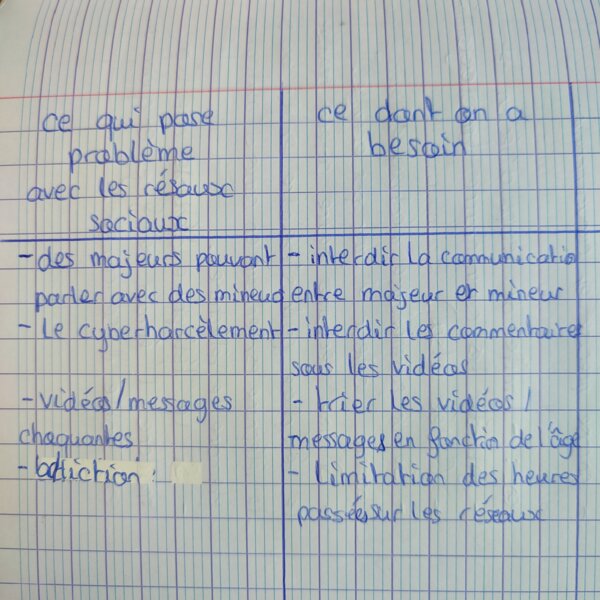 ce qui pose
problème
avec les résaux
sociaux
ce dont on a
besoin
- des majeurs pouvant
parler avec des mineus
- Le cyberharcèlement
- vidéos/messages
choquantes
- addiction :
- interdir la communication
entre majeur et mineur
- interdir les commentaires
sous les vidéos
- trier les vidéos /
messages en fonction de l'âge
- Limitation des heures
passées sur les réseaux